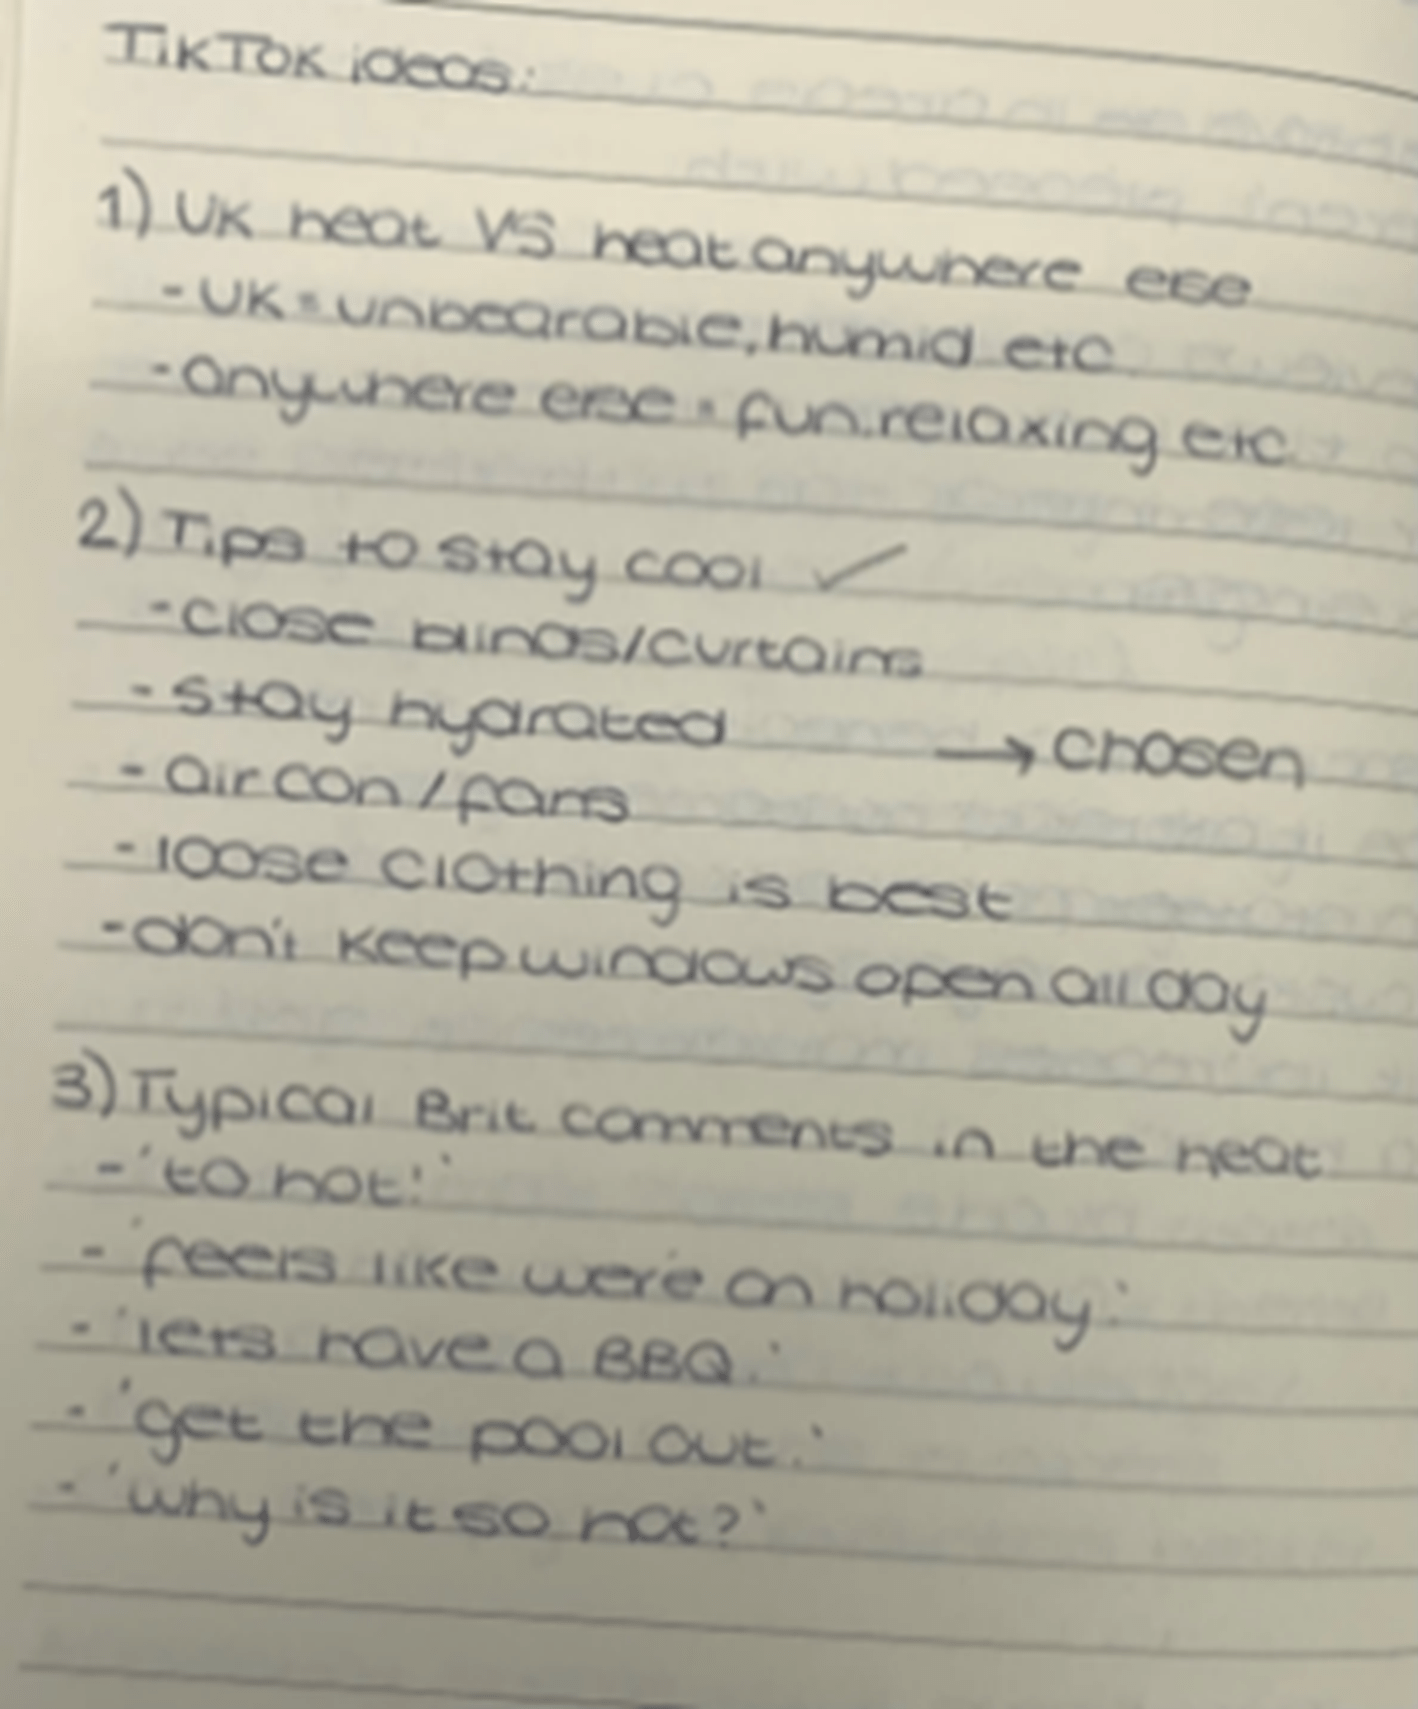 TikTok ideas:
1) UK heat VS heat anywhere else
- UK = unbearable, humid etc
- anywhere else = fun, relaxing etc
2) Tips to stay cool ✓
- close blinds/curtains
- stay hydrated
→ chosen
- air con / fans
- loose clothing is best
- don't keep windows open all day
3) Typical Brit comments in the heat
- 'to hot!'
- 'feels like we're on holiday.'
- 'lets have a BBQ.'
- 'get the pool out.'
- 'why is it so hot?'